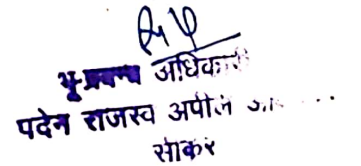 भू-प्रबन्ध अधिकारी
पदेन राजस्व अपील
सीकर